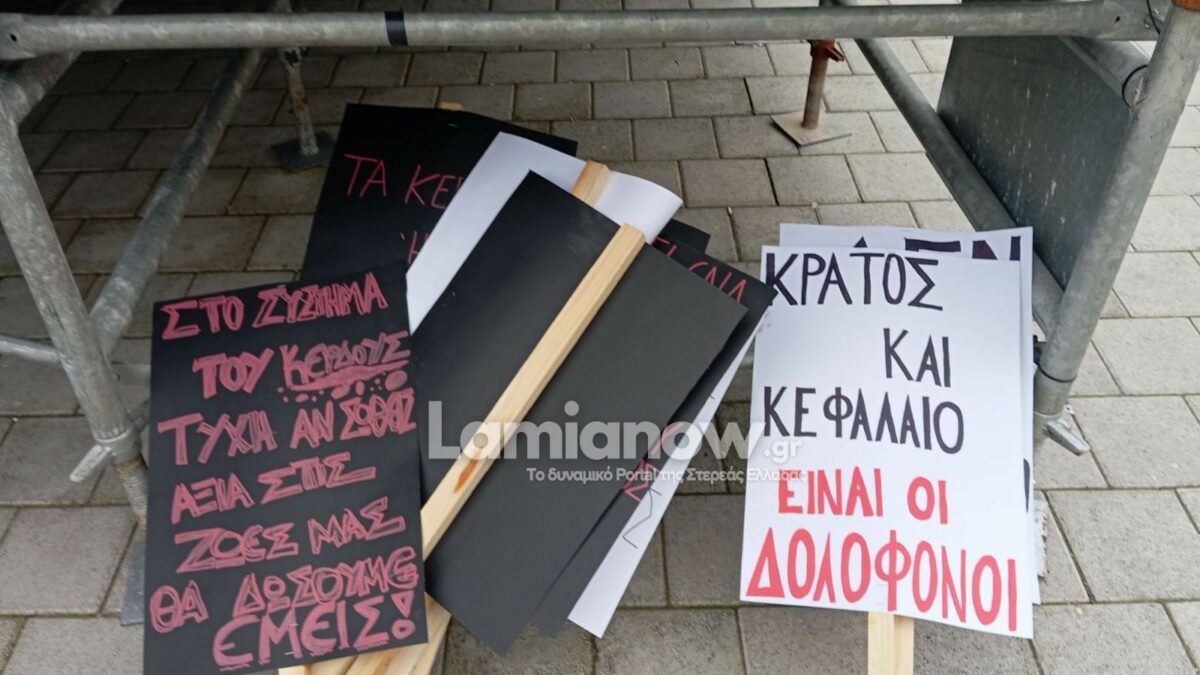 ΤΑ ΚΕ
Ή
ΣΤΟ ΣΥΣΤΗΜΑ
ΤΟΥ ΚΕΡΔΟΥΣ
ΤΥΧΗ ΑΝ ΣΩΘΕΙΣ
ΑΞΙΑ ΣΤΙΣ
ΖΩΕΣ ΜΑΣ
ΘΑ ΔΩΣΟΥΜΕ
ΕΜΕΙΣ!
ΔΕΝ
ΚΡΑΤΟΣ
ΚΑΙ
ΚΕΦΑΛΑΙΟ
ΕΙΝΑΙ ΟΙ
ΔΟΛΟΦΟΝΟΙ
Lamianow.gr
Το δυναμικό Portal της Στερεάς Ελλάδας